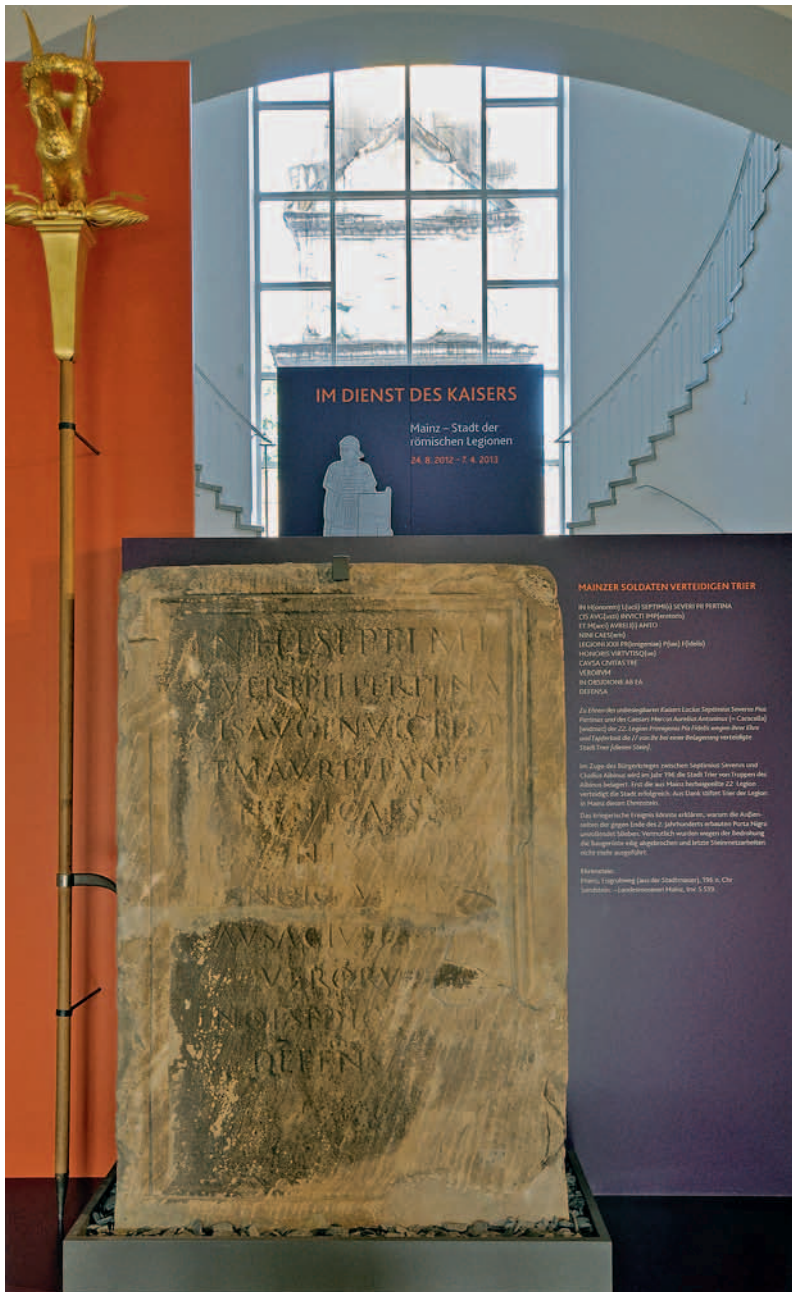 IM DIENST DES KAISERS
Mainz – Stadt der
römischen Legionen
24. 8. 2012 – 7. 4. 2013
MAINZER SOLDATEN VERTEIDIGEN TRIER
IN H(onorem) L(ucii) SEPTIMI(i) SEVERI PII PERTINA
CIS AVG(usti) INVICTI IMP(eratoris)
ET M(arci) AVRELI(i) ANTO
NINI CAES(aris)
LEGIONI XXII PR(imigeniae) P(iae) F(idelis)
HONORIS VIRTVTISQ(ue)
CAVSA CIVITAS TRE
VERORVM
IN OBSIDIONE AB EA
DEFENSA
Zu Ehren des unbesiegbaren Kaisers Lucius Septimius Severus Pius
Pertinax und des Caesars Marcus Aurelius Antoninus (= Caracalla)
[widmet] der 22. Legion Primigenia Pia Fidelis wegen ihrer Ehre
und Tapferkeit die von ihr bei einer Belagerung verteidigte
Stadt Trier [diesen Stein].
Im Zuge des Bürgerkrieges zwischen Septimius Severus und
Clodius Albinus wird im Jahr 196 die Stadt Trier von Truppen des
Albinus belagert. Erst die aus Mainz herbeigeeilte 22. Legion
verteidigt die Stadt erfolgreich. Aus Dank stiftet Trier der Legion
in Mainz diesen Ehrenstein.
Das kriegerische Ereignis könnte erklären, warum die Außen-
seiten der gegen Ende des 2. Jahrhunderts erbauten Porta Nigra
unvollendet blieben. Vermutlich wurden wegen der Bedrohung
die Baugerüste eilig abgebrochen und letzte Steinmetzarbeiten
nicht mehr ausgeführt.
Ehrenstein:
Mainz, (aus der Stadtmauer), 196 n. Chr
Sandstein. – Landesmuseum Mainz, Inv. S 539
IN H L SEPTIMI
SEVERI PII PERTINA
CIS AVG INVICTI IMP
ET M AVRELI ANTO
NINI CAES
AVSA CIVI
VERORV
IN OBSIDIO
DEFENS